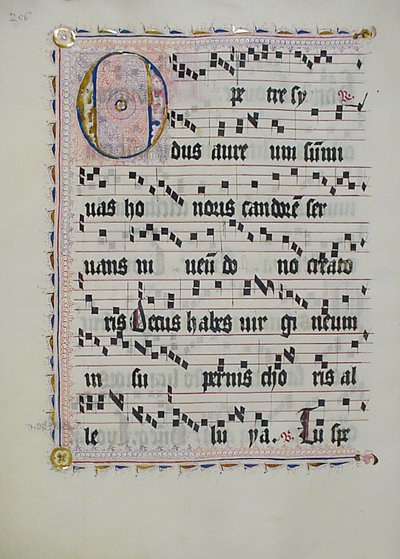 O pe tre sy ℣.
dus aure um sūmi
uas ho noris candorē ser
uans in ueū do no creato
ris Decus habes uir gi neum
in su pernis cho ris al
le lu ya. ℣. Tu spe